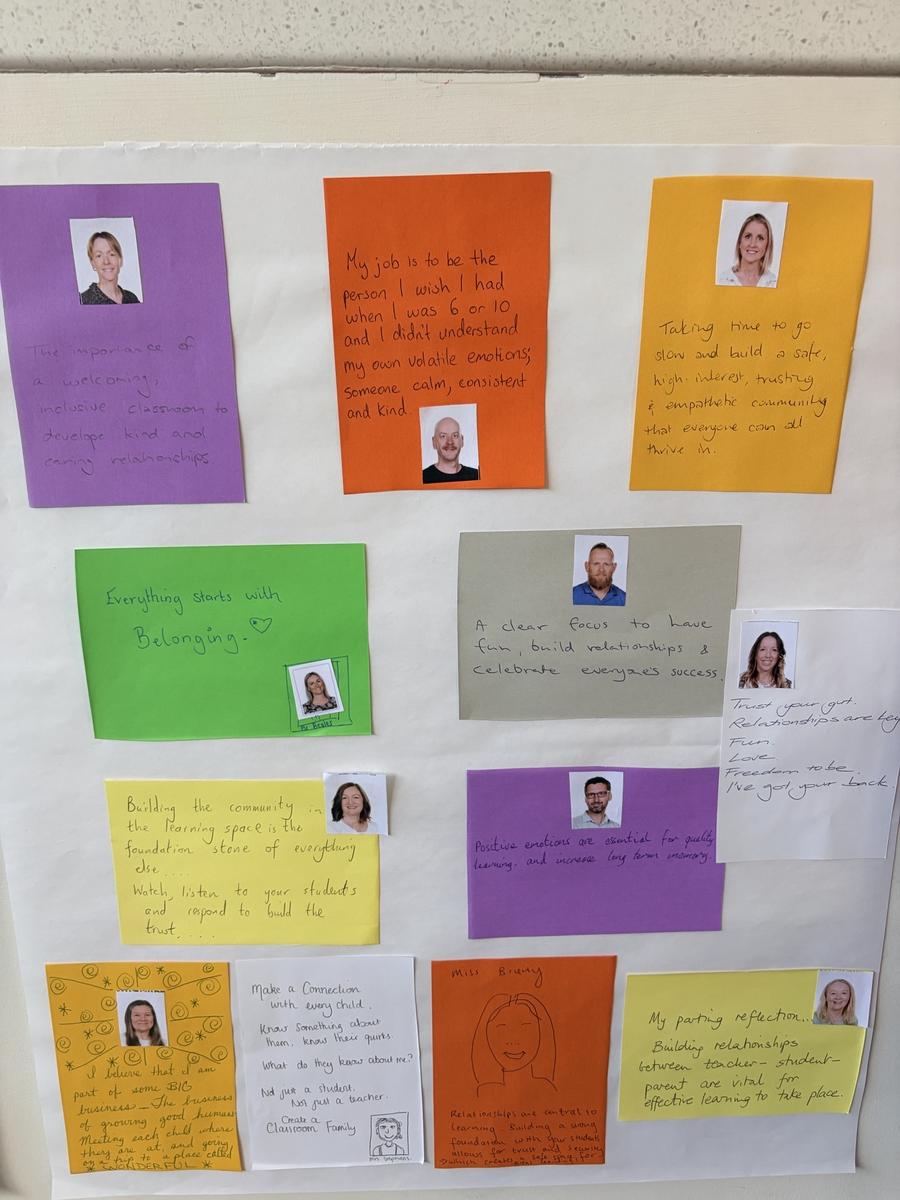 The importance of
a welcoming,
inclusive classroom to
develope kind and
caring relationships.
My job is to be the
person I wish I had
when I was 6 or 10
and I didn't understand
my own volatile emotions;
someone calm, consistent
and kind.
Taking time to go
slow and build a safe,
high-interest, trusting
& empathetic community
that everyone can all
thrive in.
Everything starts with
Belonging.
A clear focus to have
fun, build relationships &
celebrate everyone's success.
Trust your gut.
Relationships are key
Fun.
Love.
Freedom to be.
I've got your back.
Building the community in
the learning space is the
foundation stone of everything
else....
Watch, listen to your student's
and respond to build the
trust....
Positive emotions are essential for quality
learning. and increase long term memory.
I believe that I am
part of some BIG
business - The business
of growing good humans
Meeting each child where
they are at, and going
on a trip to a place called
WONDERFUL
Make a Connection
with every child.
Know something about
them, know their quirks.
What do they know about me?
Not just a student.
Not just a teacher.
Create a
Classroom Family
Miss
Relationships are central to
learning. Building a strong
foundation with your students
allows for trust and security
which creates a safe space for
My parting reflection...
Building relationships
between teacher - student -
parent are vital for
effective learning to take place.